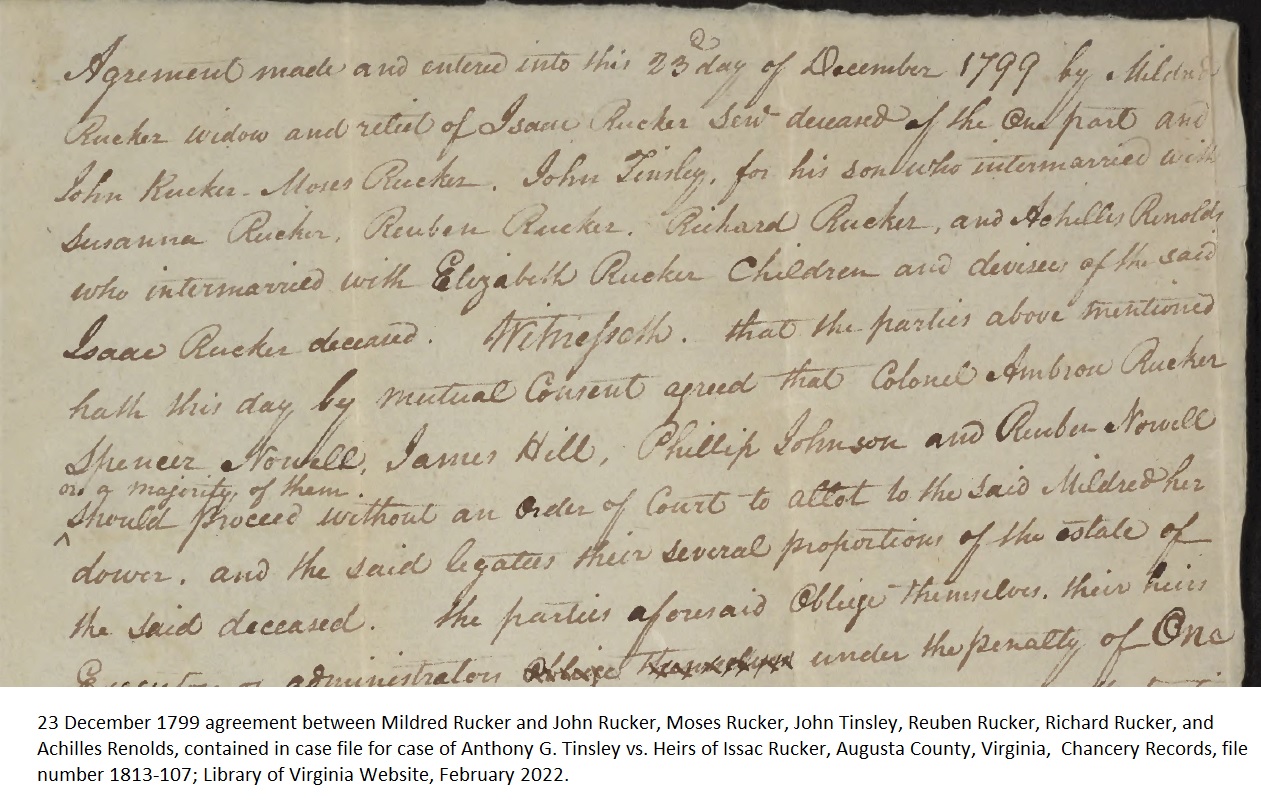 Agrement made and entered into this 23d day of December 1799 by Mildred
Rucker widow and relict of Isaac Rucker Senr deceased of the One part and
John Rucker - Moses Rucker. John Tinsley, for his son who intermarried with
Susanna Rucker, Reuben Rucker. Richard Rucker, and Achillis Renolds
who intermarried with Elizabeth Rucker Children and devisees of the said
Isaac Rucker deceased. Witnesseth. that the parties above mentioned
hath this day by mutual Consent agreed that Colonel Ambrose Rucker
Spencer Nowell, James Hill, Phillip Johnson and Reuben Nowell
or a majority of them.
^ should proceed without an Order of Court to allot to the said Mildred her
dower. and the said legatees their several proportions of the estate of
the said deceased. the parties aforesaid Obliege themselves. their heirs
administrators Obliege themselves under the penalty of One
23 December 1799 agreement between Mildred Rucker and John Rucker, Moses Rucker, John Tinsley, Reuben Rucker, Richard Rucker, and
Achilles Renolds, contained in case file for case of Anthony G. Tinsley vs. Heirs of Issac Rucker, Augusta County, Virginia, Chancery Records, file
number 1813-107; Library of Virginia Website, February 2022.